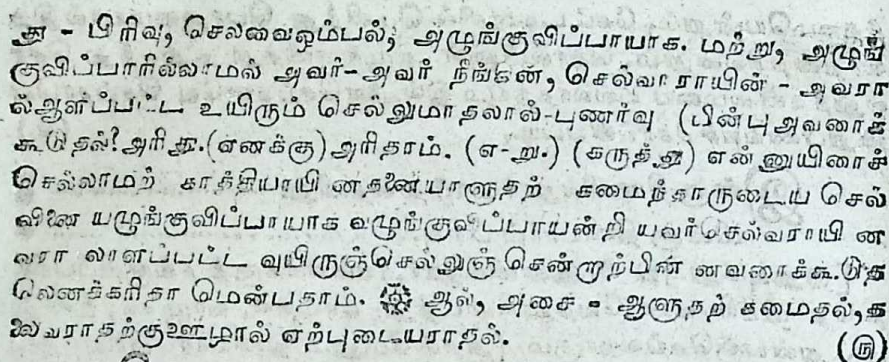 து - பிரிவு, செலவைஓம்பல், அழுங்குவிப்பாயாக. மற்று, அழுங்
குவிப்பாரில்லாமல் அவர்-அவர் நீங்கன், செல்வாராயின் - அவரா
ல்ஆளப்பட்ட உயிரும் செல்லுமாதலால்-புணர்வு (பின்புஅவரைக்
கூடுதல்? அரிது.(எனக்கு)அரிதாம். (எ-று.) (கருத்து) என்னுயிரைச்
செல்லாமற் காத்தியாயி னதனையாளுதற் கமைந்தாருடைய செல்
வினை யழுங்குவிப்பாயாக வழுங்குவிப்பாயன்றி யவர்செல்வராயி ன
வரா லாளப்பட்ட வுயிருஞ்செல்லுஞ் சென்றாற்பின் னவரைக்கூடுத
லெனக்கரிதா மென்பதாம். ஆல், அசை - ஆளுதற் கமைதல்,த
லைவராதற்குஊழால் ஏற்புடையராதல்.
(ரு)